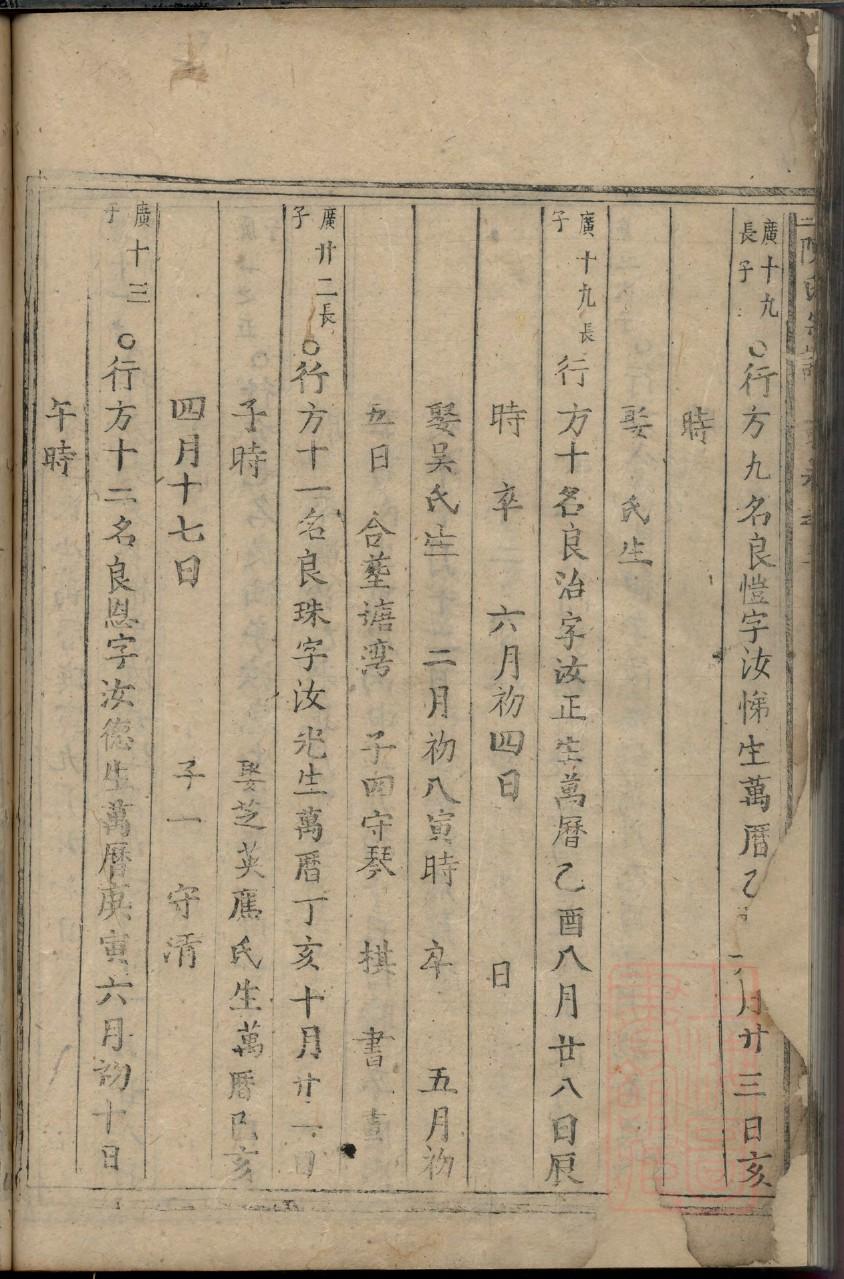 廣十九
長子
〇行方九名良愷字汝悌生萬曆乙 月廿三日亥
時
娶 氏生
廣十九長
子
行方十名良治字汝正生萬曆乙酉八月廿八日辰
時 卒 六月初四日 日
娶吴氏生 二月初八寅時 卒 五月初
五日 合塟 子四守琴 棋 書
廣廿二長
子
〇行方十一名良珠字汝光生萬曆丁亥十月廿一日
子時 娶芝英應氏生萬曆己亥
四月十七日 子一 守清
廣十三
子
〇行方十二名良恩字汝德生萬曆庚寅六月初十日
午時